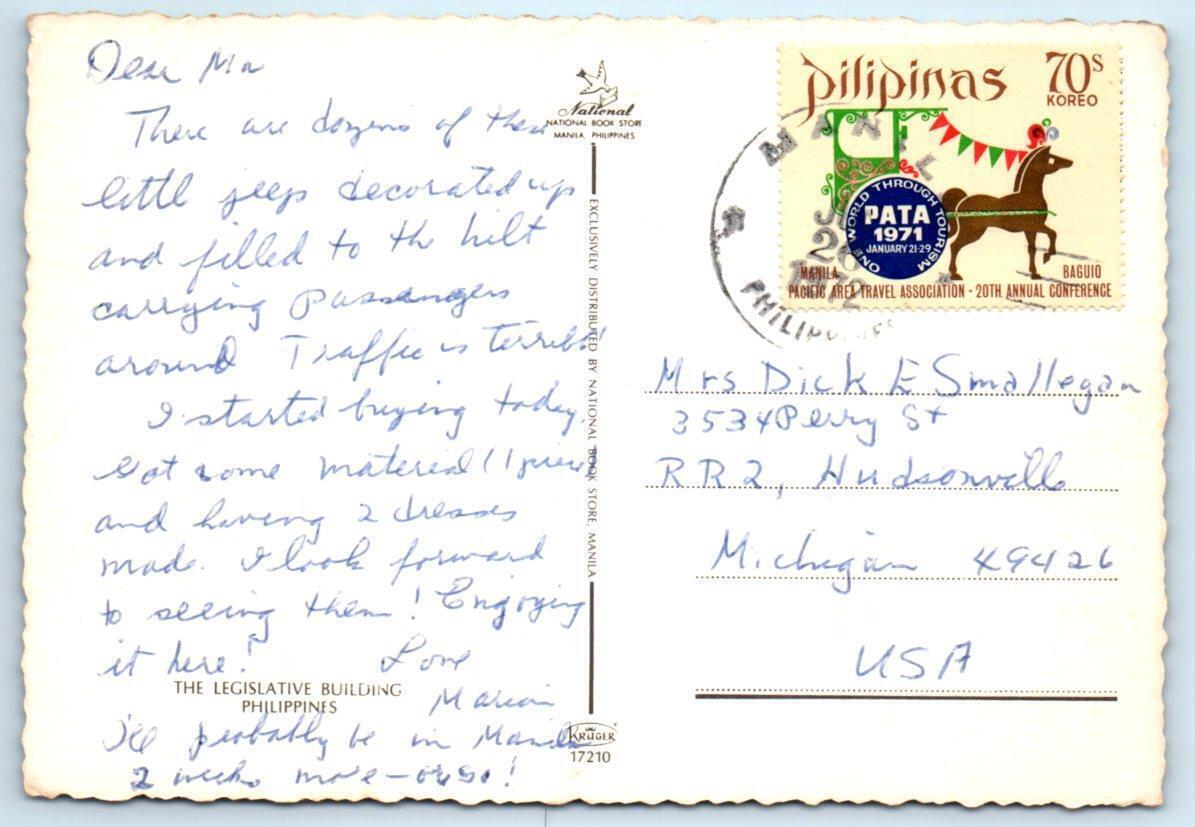 Dear Ma
There are dozens of these
little jeeps decorated up
and filled to the hilt
carrying passengers
around Traffic is terrible!
I started buying today.
Got some material (1 piece)
and having 2 dresses
made. I look forward
to seeing them! Enjoying
it here! Love
Marion
THE LEGISLATIVE BUILDING
PHILIPPINES
I'll probably be in Manila
2 weeks more - or so!
National
NATIONAL BOOK STORE
MANILA, PHILIPPINES
EXCLUSIVELY DISTRIBUTED BY NATIONAL BOOK STORE, MANILA
KRÜGER
17210
pilipinas 70s
KOREO
ONE WORLD THROUGH TOURISM
PATA
1971
JANUARY 21-29
MANILA BAGUIO
PACIFIC AREA TRAVEL ASSOCIATION - 20TH ANNUAL CONFERENCE
MANILA
26
1972
PHILIPPINES
Mrs Dick E Smallegan
3534 Perry St
RR2, Hudsonville
Michigan 49426
USA